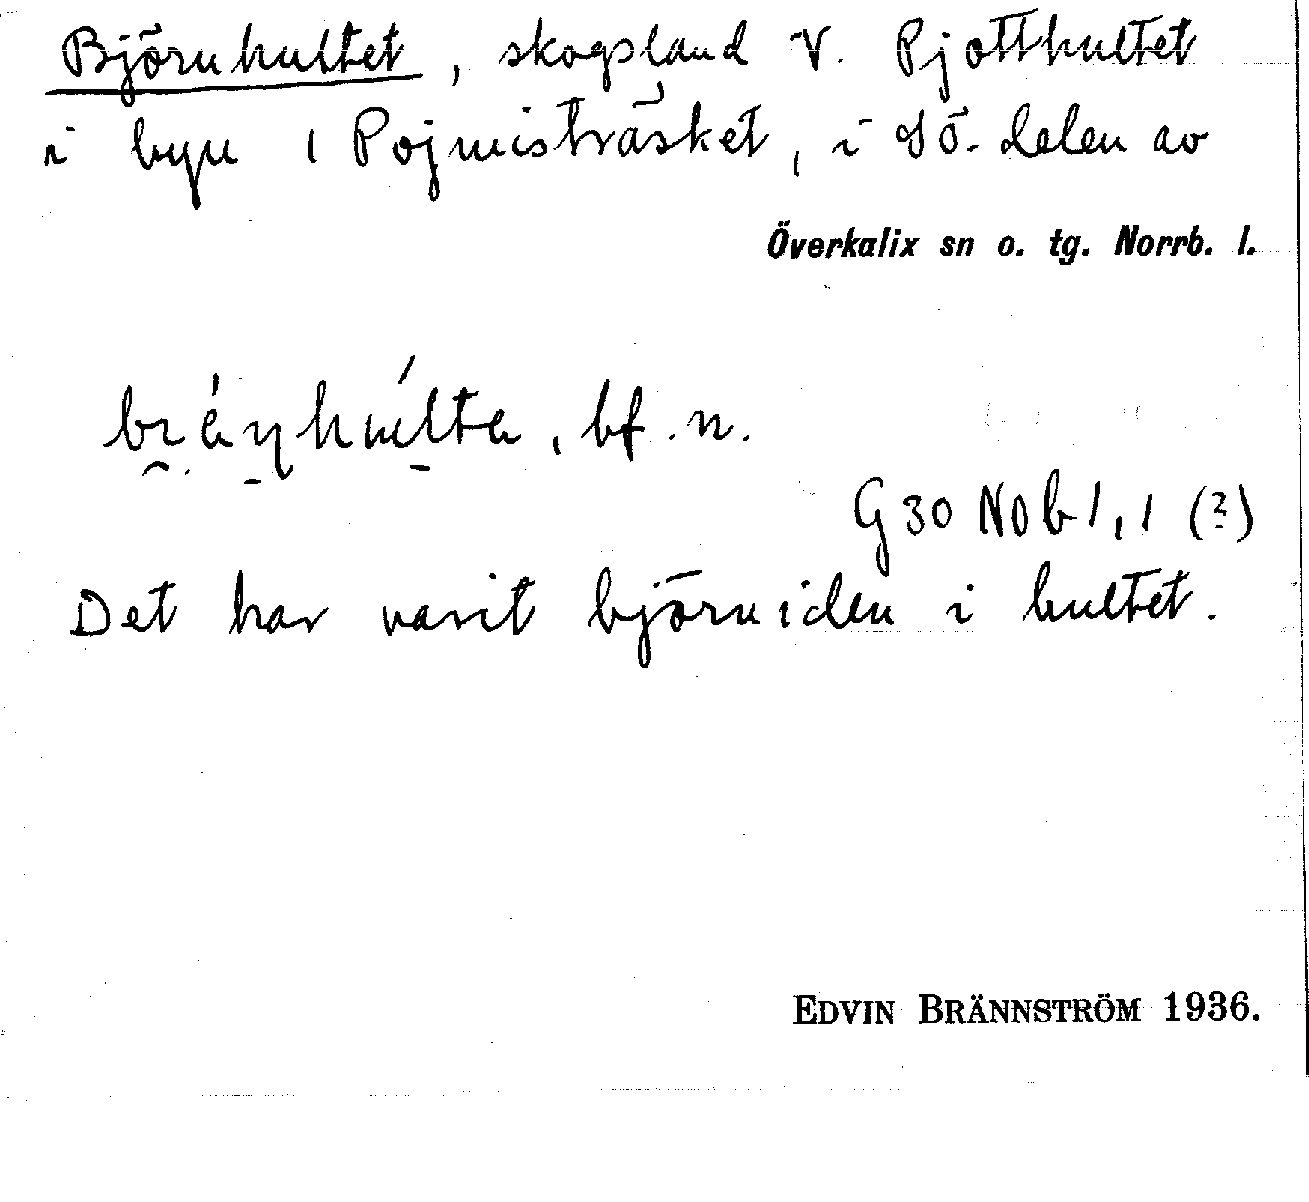 Björnhultet, skogsland V. Pjotthultet
i byn 1 Pojmisträsket, i SÖ. delen av
Överkalix sn o. tg. Norrb. l.
bf. n.
G 30 Nob 1, 1 (?)
Det har varit björniden i hultet.
EDVIN BRÄNNSTRÖM 1936.